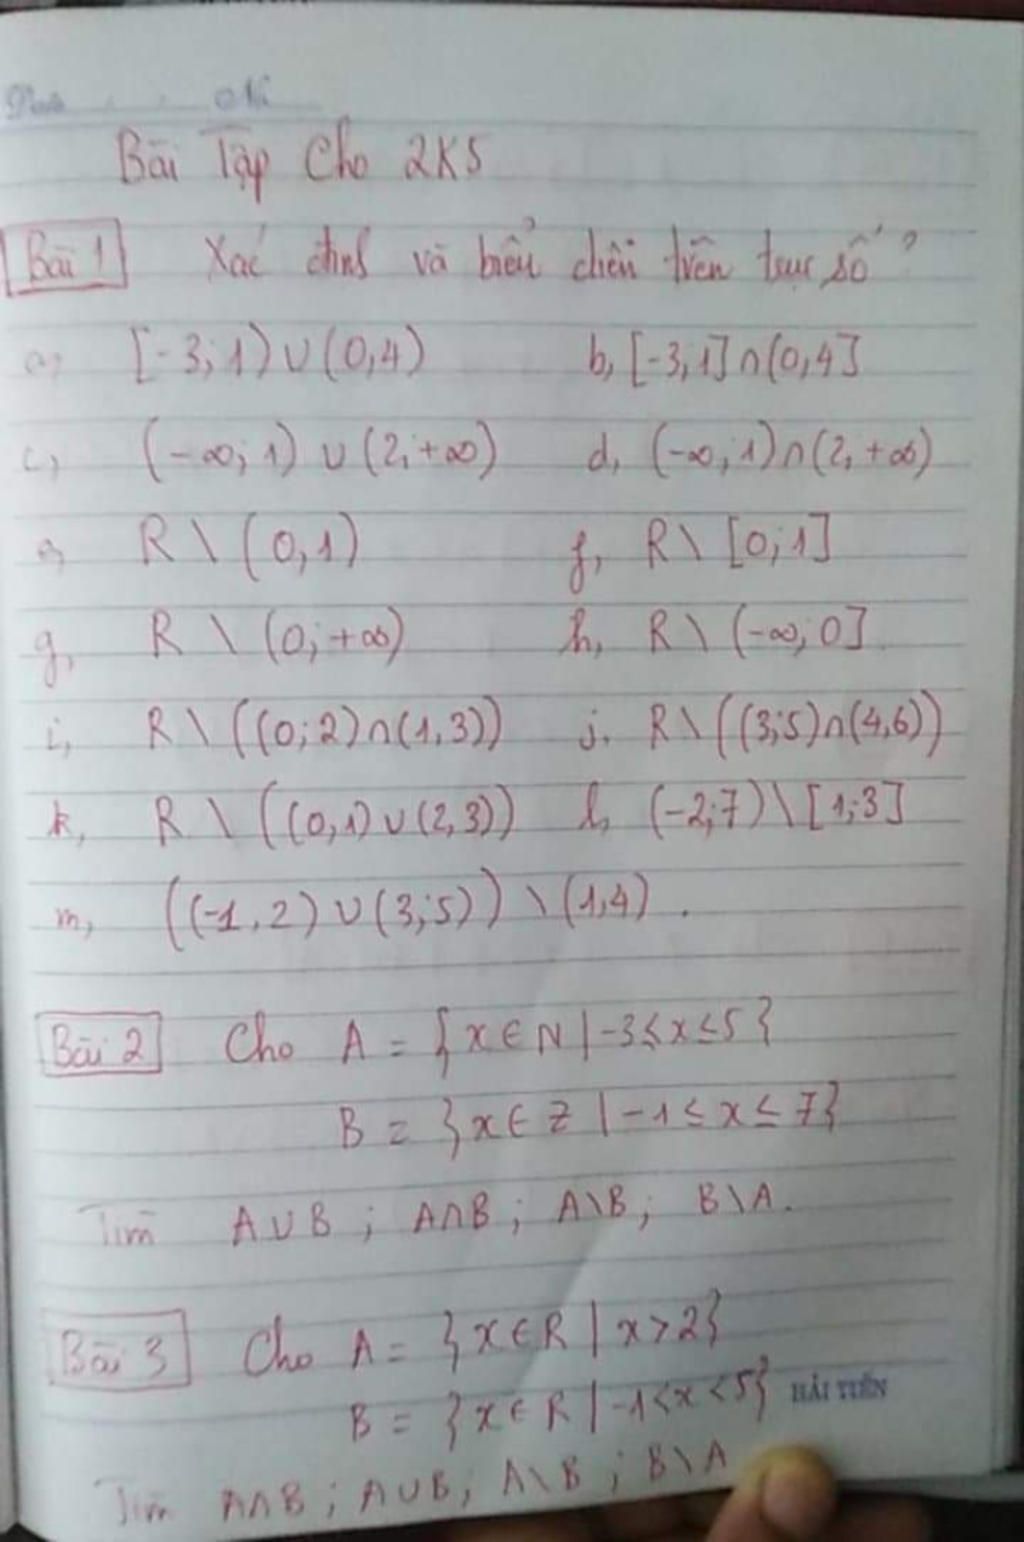 Bài Tập Cho 2K5
Bài 1 Xác định và biểu diễn trên trục số ?
a, [-3; 1) ∪ (0,4) b, [-3,1] ∩ (0,4]
c, (-∞; 1) ∪ (2,+∞) d, (-∞,1) ∩ (2,+∞)
e, R \ (0,1) f, R \ [0;1]
g, R \ (0;+∞) h, R \ (-∞,0]
i, R \ ((0;2) ∩ (1,3)) j. R \ ((3;5) ∩ (4,6))
k, R \ ((0,1) ∪ (2,3)) l, (-2;7) \ [1;3]
m, ((-1,2) ∪ (3;5)) \ (1,4).
Bài 2 Cho A = {x ∈ N | -3 ≤ x ≤ 5}
B = {x ∈ Z | -1 ≤ x ≤ 7}
Tìm A∪B ; A∩B ; A\B ; B\A.
Bài 3 Cho A = {x ∈ R | x > 2}
B = {x ∈ R | -1 < x < 5} HẢI TIẾN
Tìm A∩B ; A∪B ; A\B ; B\A